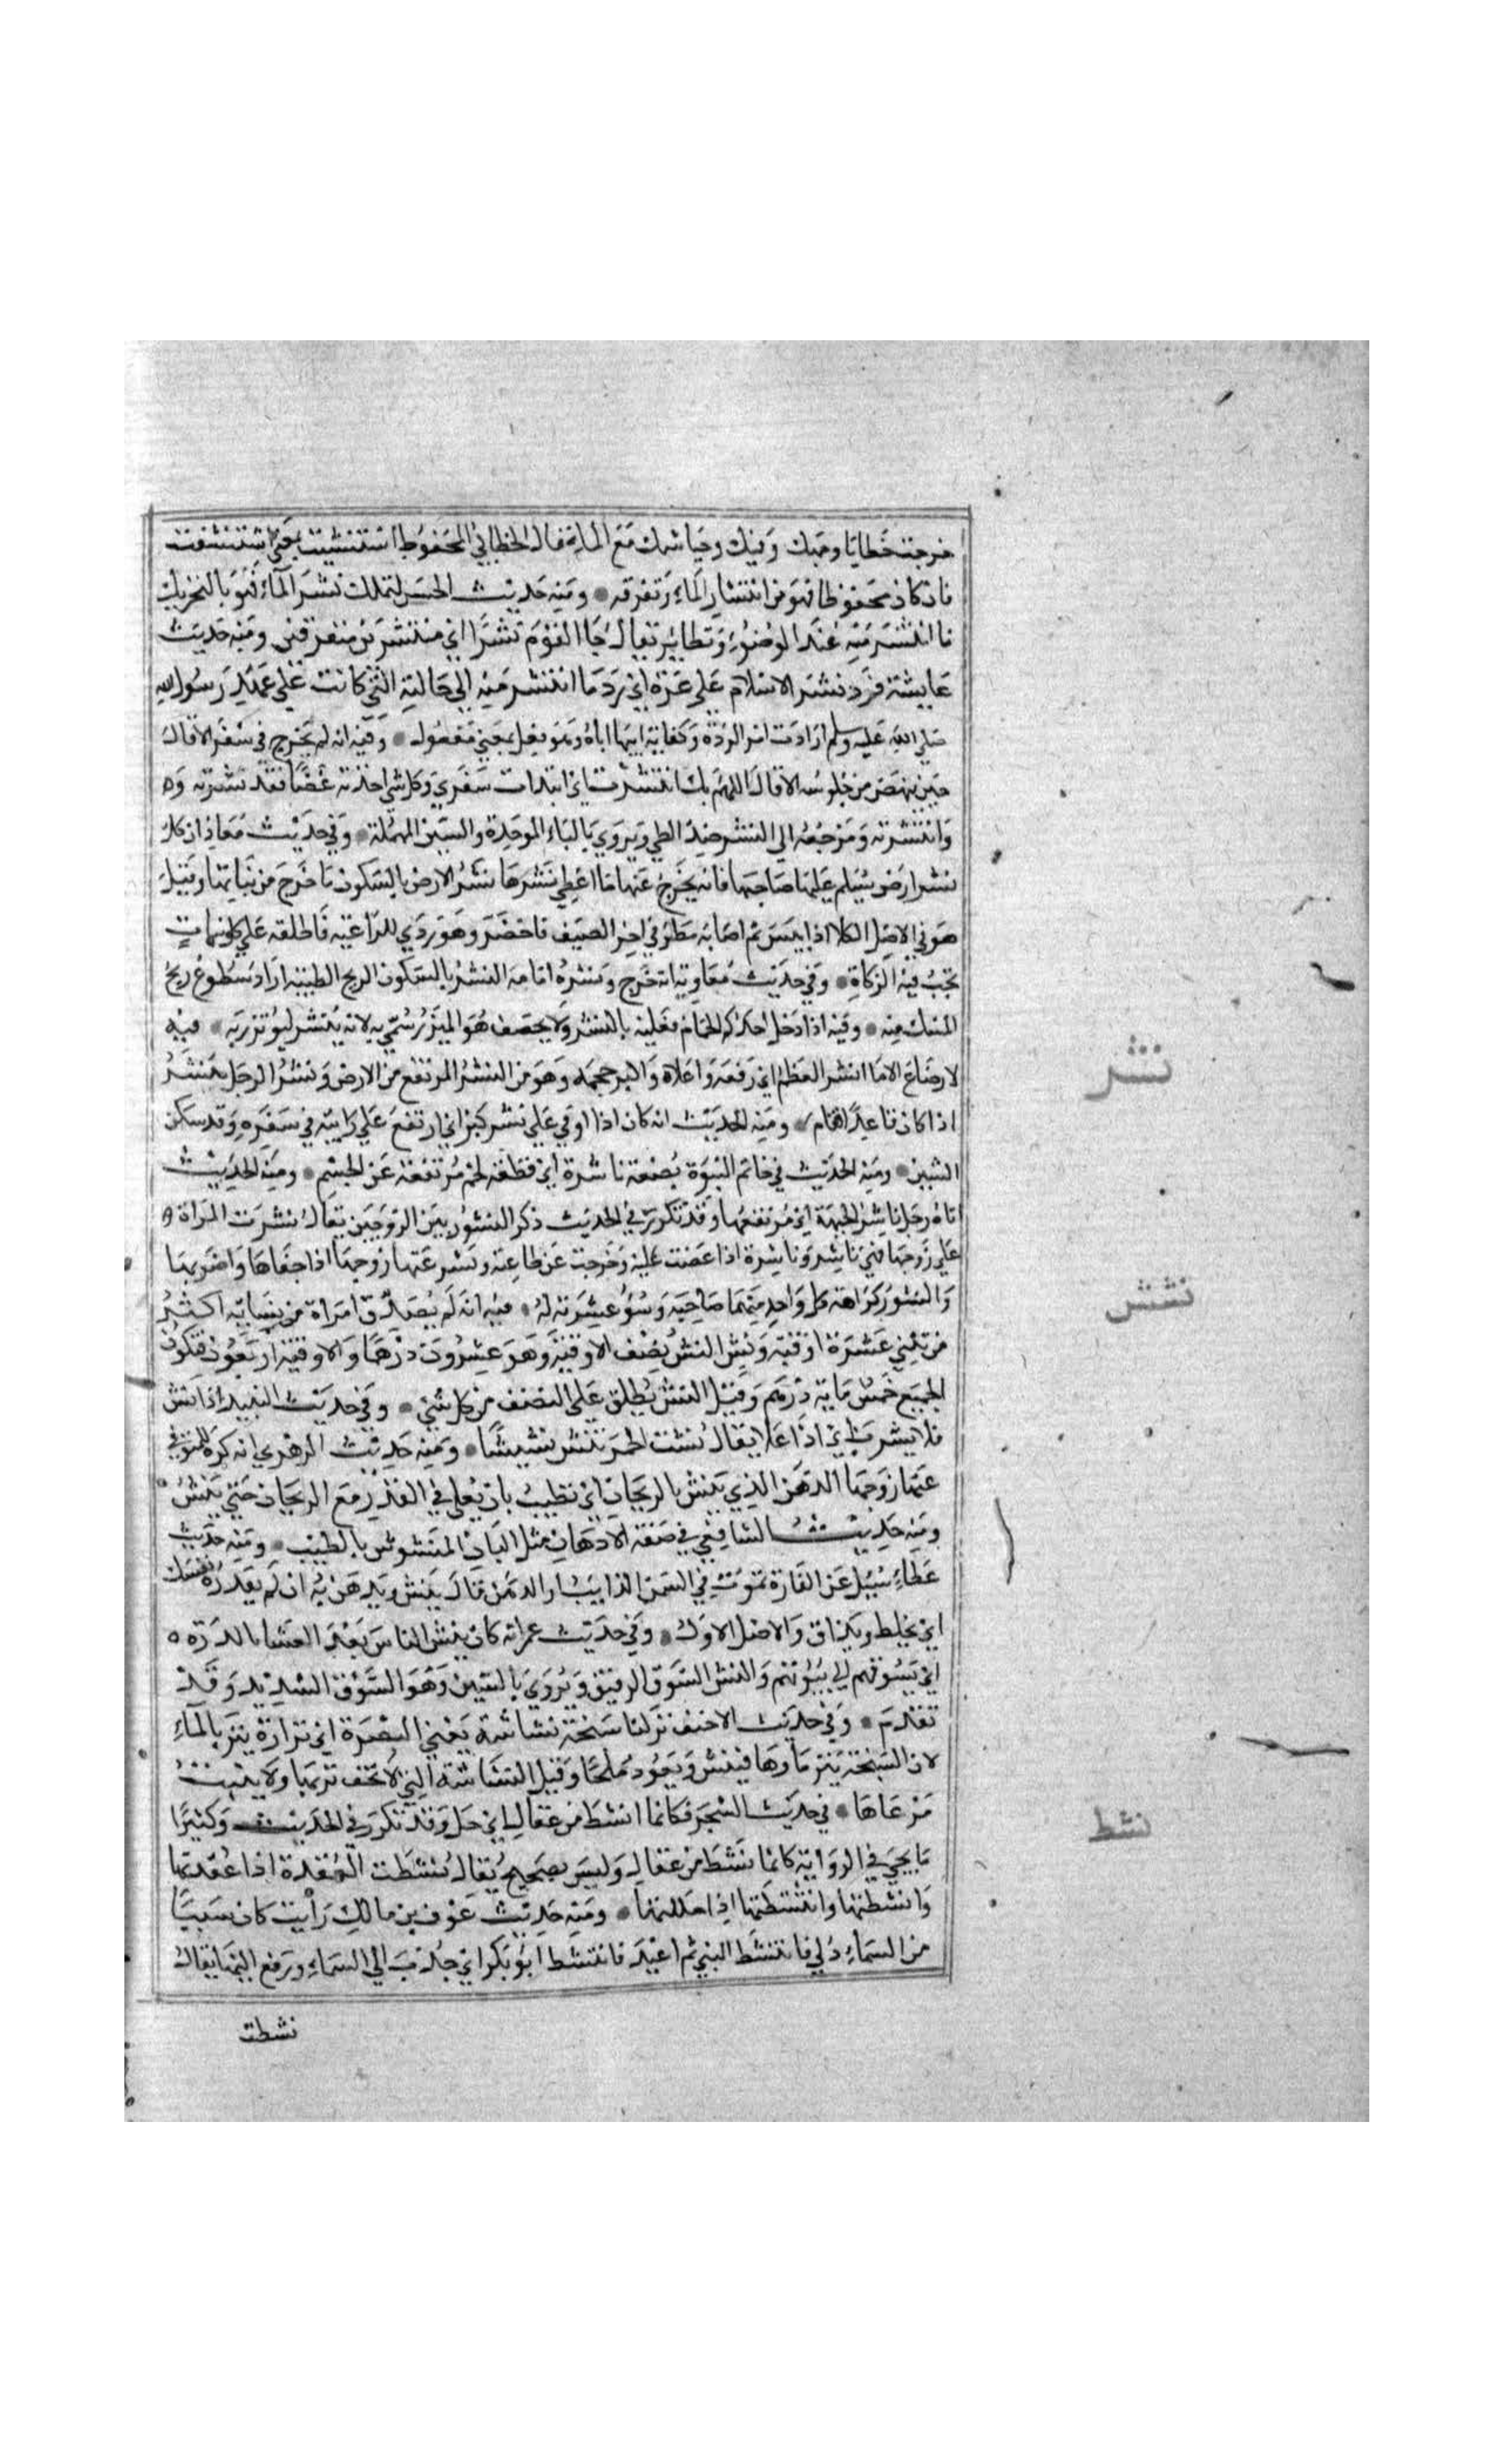 خرجت خطايا وجهك وفيك وخياشمك مع الماء قال الخطابي المحفوظ استنشيت بمعنى استنشقت
فان كان محفوظا فهو من انتشار الماء وتفرقه ومنه حديث الحسن لتملك نشر الماء هو بالتحريك
ما انتشر منه عند الوضوء وتطاير يقال جا القوم نشرا اي منتشرين متفرقين ومنه حديث
عايشة فرد نشر الاسلام على غره اي رد ما انتشر منه الى حالته التي كانت على عهد رسول الله
صلى الله عليه وسلم ارادت امر الردة وكفاية ابيها اياه وهو فعل بمعنى مفعول وفيه انه لم يخرج في سفر الا قال
حين ينهض من جلوسه الا قال اللهم بك انتشرت اي ابتدات سفري وكل شي اخذته غضا فقد نشرته
وانتشرته ومرجعه الى النشر ضد الطي ويروى بالباء الموحدة والسين المهملة وفي حديث معاذ ان كل
نشر ارض يسلم عليها صاحبها فانه يخرج عنها ما اعطي نشرها نشر الارض بالسكون ما خرج من نباتها وقيل
هو في الاصل الكلا اذا يبس ثم اصابه مطر في اخر الصيف فاخضر وهو ردي للراعية فاطلقه على كل نبات
تجب فيه الزكاة وفي حديث معاوية انه خرج ونشره امامه النشر بالسكون الريح الطيبة اراد سطوع ريح
المسك منه وفيه اذا دخل احدكم الحمام فعليه بالنشر ولا يخصف هو الميزر سمي به لانه ينشر ليؤتزر به فيه
لا رضاع الا ما انشر العظم اي رفعه واعلاه واكبر حجمه وهو من النشر المرتفع من الارض ونشر الرجل ينشر
اذا كان قاعدا فقام ومنه الحديث انه كان اذا اوفى على نشر كبر اي ارتفع على رابية في سفره وقد سكن
الشين ومنه الحديث في خاتم النبوة بضعة ناشرة اي قطعة لحم مرتفعة عن الجسم ومنه الحديث
اتاه رجل ناشر الجبهة اي مرتفعها وقد تكرر في الحديث ذكر النشور بين الزوجين يقال نشرت المراة
على زوجها فهي ناشر وناشرة اذا عصت عليه وخرجت عن طاعته ونشر عنها زوجها اذا جفاها واضر بها
والنشور كراهة كل واحد منهما صاحبه وسوء عشرته له فيه انه لم يصدق امراة من نسايه اكثر
من ثنتي عشرة اوقية ونش النش نصف الاوقية وهو عشرون درهما والاوقية اربعون فيكون
الجميع خمس ماية درهم وقيل النش يطلق على النصف من كل شي وفي حديث النبيذ اذا نش
فلا يشرب اي اذا غلا يقال نشت الخمر تنش نشيشا ومنه حديث الزهري انه كره للمتوفى
عنها زوجها الدهن الذي ينش بالريحان اي يطيب بان يغلى في القدر مع الريحان حتى ينش
ومنه حديث الشافعي في صفة الادهان مثل البان المنشوش بالطيب ومنه حديث
عطاء سيل عن الفارة تموت في السمن الذايب او الدهن قال ينش ويدهن به ان لم يقذره نفسك
اي يخلط ويذاف والاصل الاول وفي حديث عمر انه كان ينش الناس بعد العشا بالدره
اي يسوقهم الى بيوتهم والنش السوق الرفيق ويروى بالسين وهو السوق الشديد وقد
تقدم وفي حديث الاحنف نزلنا سبخة نشاشة يعني البصرة اي نزازة ينز بالماء
لان السبخة ينز ماوها فينش ويعود ملحا وقيل النشاشة التي لا يجف تربها ولا ينبت
مرعاها في حديث السحر فكانما انشط من عقال اي حل وقد تكرر في الحديث وكثيرا
ما يجي في الرواية كانما نشط من عقال وليس بصحيح يقال نشطت العقدة اذا عقدتها
وانشطتها وانتشطتها اذا حللتها ومنه حديث عوف بن مالك رايت كان سببا
من السماء دلي فانتشط النبي ثم اعيد فانتشط ابو بكر اي جذب الى السماء ورفع اليها يقال
نشطت
نشر
نشش
نشط